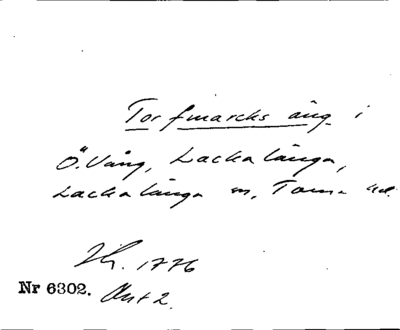 Torfmarcks äng i
Ö. Vång, Lackalänga,
Lackalänga sn, Torna hd.
1776
Nr 6302.